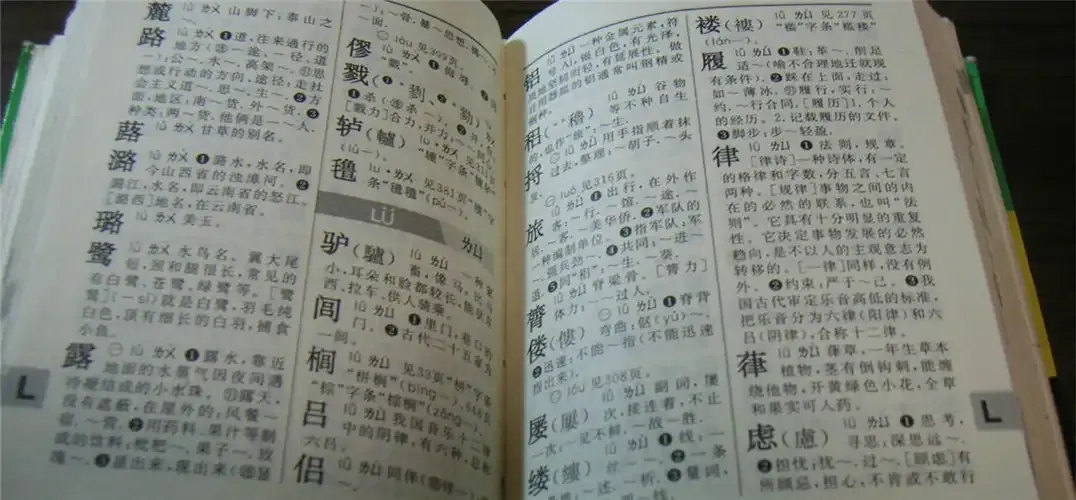 麓 lù ㄌㄨˋ 山脚下：泰山之
～。
路 lù ㄌㄨˋ ❶道，往来通行的
地方(㊣－途、－径、道
－)：公～、水～、高架～。㊁思
想或行动的方向、途径：走社
会主义道～、思～、生～。❷方
面，地区：南～货、外～货。❸
种类：两～货、他俩是一～人。
蕗 lù ㄌㄨˋ 甘草的别名。
潞 lù ㄌㄨˋ ❶潞水，水名，即
今山西省的浊漳河。❷
潞江，水名，即云南省的怒江。
[潞西]地名，在云南省。
璐 lù ㄌㄨˋ 美玉。
鹭 lù ㄌㄨˋ 水鸟名。翼大尾
短，颈和腿很长，常见的
有白鹭、苍鹭、绿鹭等。[鹭
鸶](－sī)就是白鹭，羽毛纯
白色，顶有细长的白羽，捕食
小鱼。
露 ㊀lù ㄌㄨˋ ❶露水，靠近
地面的水蒸气因夜间遇
冷凝结成的小水珠。㊁露天，
没有遮蔽，在屋外的：风餐～
宿、～营。❷用药料、果汁等制
成的饮料：枇杷～、果子～、玫
瑰～。❸显出来，现出来(㊣显
㊁lòu 见309页。
僇
戮
轳(轤)
氇
条“氆氇”(pǔ－)。
LÜ ㄌㄩ
驴(驢) lǘ ㄌㄩˊ 一种家
畜，像马，比马
小，耳朵和脸都较长，能驮东
西、拉车、供人骑乘。
闾 lǘ ㄌㄩˊ ❶里门，巷口的
门。❷古代二十五家为
一闾。
榈 lǘ ㄌㄩˊ 见33页“栟”字条
“栟榈”(bīng－)、
“棕”字条“棕榈”(zōng－)。
吕 lǚ ㄌㄩˇ 我国音乐十二律
中的阴律，有六种，总称
六吕。
侣 lǚ ㄌㄩˇ 同伴(㊣伴－)：
铝 lǚ ㄌㄩˇ 一种金属元素，符
号Al，银白色，有光泽，
质地坚韧而轻，有延展性。做
日用器皿的铝通常叫钢精或
钢种。
稆(*穭) lǚ ㄌㄩˇ 谷物
等不种自生
的，也作“旅”：～生。
捋 ㊀lǚ ㄌㄩˇ 用手指顺着抹
过去，整理：～胡子、～头
发。
㊁luō 见316页。
旅 lǚ ㄌㄩˇ ❶出行，在外作
客：～行、～馆、～途、～
居、～客、～美华侨。❷军队的
一种编制单位。❸指军队：军
～、强兵劲～。❹共同：～进～
退。❺同“稆”：～生、～葵。
膂 lǚ ㄌㄩˇ 脊梁骨。[膂力]
体力：～～过人。
偻(僂) ㊀lǚ ㄌㄩˇ ❶脊背
弯曲：伛(yǔ)～。
❷迅速：不能～指(不能迅速
指出来)。
㊁lóu 见308页。
屡(屢) lǚ ㄌㄩˇ 副词，屡
次，接连着，不止
一次：～见不鲜、～战～胜。
缕(縷) lǚ ㄌㄩˇ ❶线：一
～、丝～。❷一条一
条地：～述、～析。❸量词，
褛(褸) lǚ ㄌㄩˇ 见277页
“褴”字条“褴褛”
(lán－)。
履 lǚ ㄌㄩˇ ❶鞋：革～、削足
适～(喻不合理地迁就现
有条件)。❷踩在上面，走过：
如～薄冰。㊁履行，实行：～
约、～行合同。[履历]1.个人
的经历。2.记载履历的文件。
❸脚步：步～轻盈。
律 lǜ ㄌㄩˋ ❶法则，规章。
[律诗]一种诗体，有一定
的格律和字数，分五言、七言
两种。[规律]事物之间的内
在的必然的联系，也叫“法
则”。它具有十分明显的重复
性。它决定事物发展的必然
趋向，是不以人的主观意志为
转移的。[一律]同样，没有例
外。❷约束：严于～己。❸我
国古代审定乐音高低的标准，
把乐音分为六律(阳律)和六
吕(阴律)，合称十二律。
葎 lǜ ㄌㄩˋ 葎草，一年生草本
植物，茎有倒钩刺，能缠
绕他物，开黄绿色小花，全草
和果实可入药。
虑(慮) lǜ ㄌㄩˋ ❶思考，
寻思：深思远～。
❷担忧：忧～、过～。[顾虑]有
所顾忌，担心，不肯或不敢行
L
L